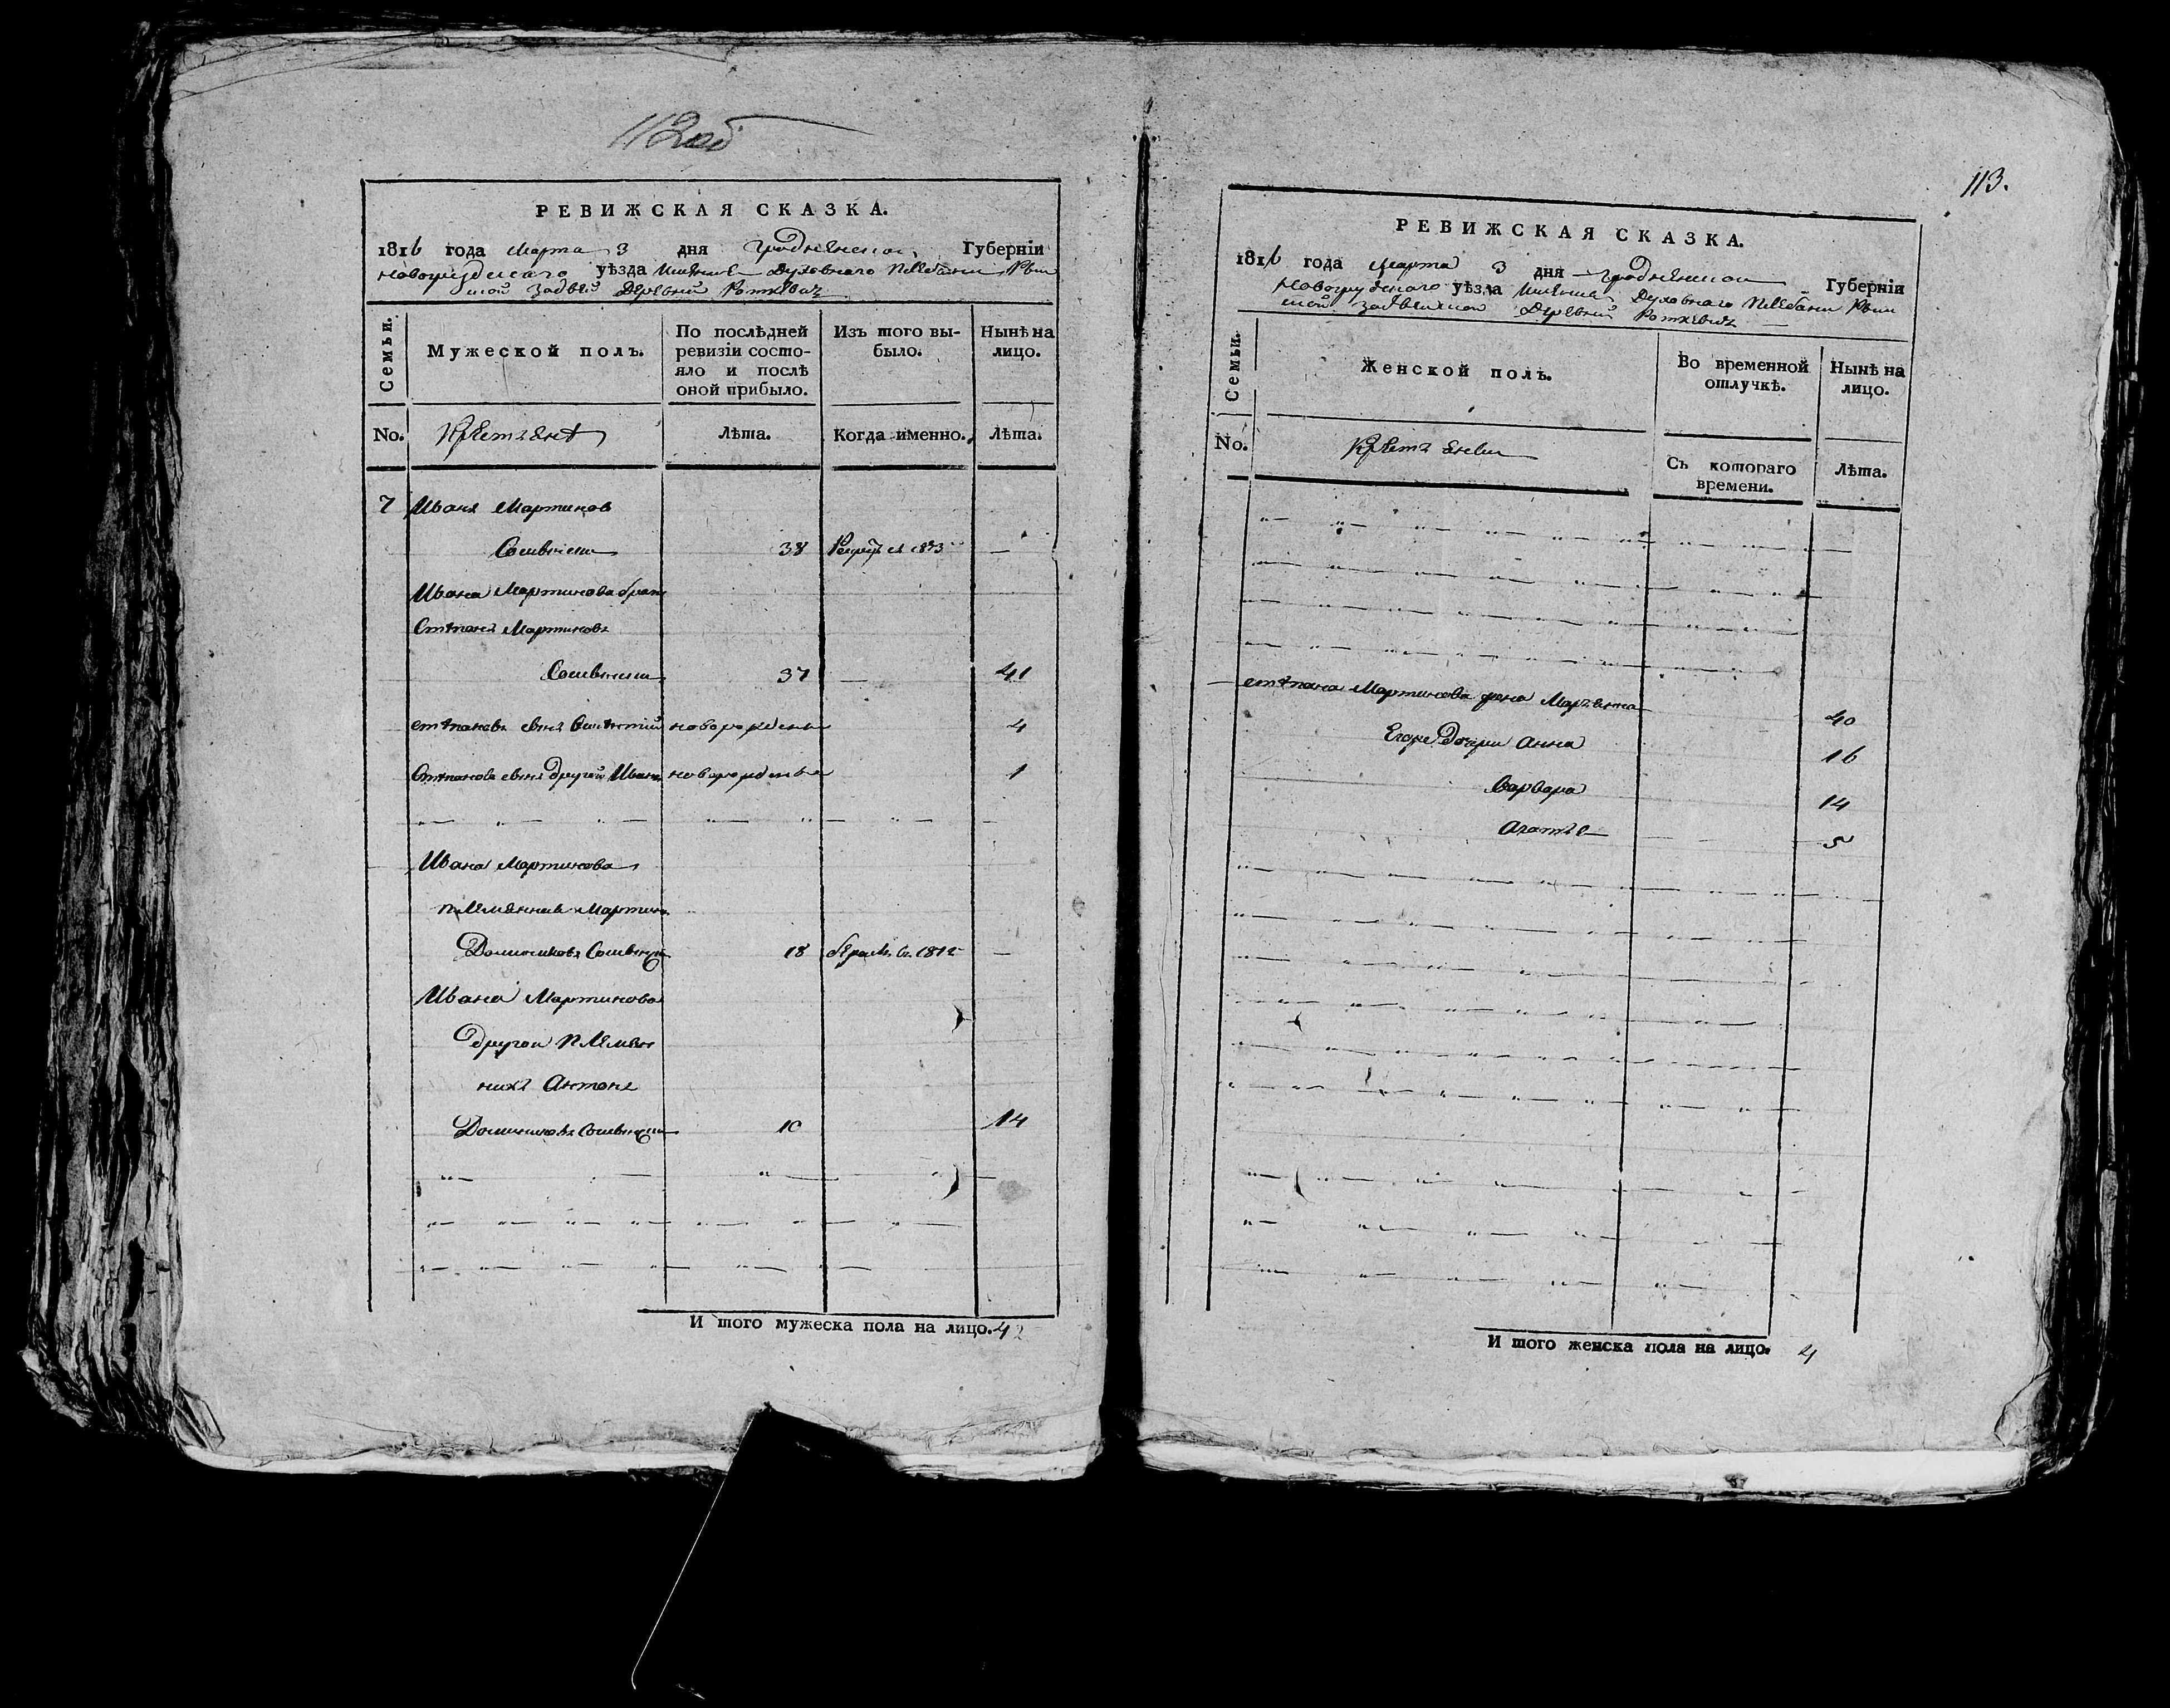 112об
РЕВИЖСКАЯ СКАЗКА.
1816 года Марта 3 дня Гродненской Губерніи
Новогрудскаго уѣзда Имѣния Духовнаго Плебании
Деревни Роткевич
Семьи.
Мужеской полъ.
По послѣдней ревизіи состояло и послѣ оной прибыло.
Изъ того выбыло.
Нынѣ на лицо.
No.
Крестяне
Лѣта.
Когда именно.
Лѣта.
7 Иванъ Мартинов
38 —
Ивана Мартинова брат
Степанъ Мартиновъ
37 — 41
Степановъ сынъ новорожденъ 4
Степанова сынъ другой Иванъ новорожденъ 1
Ивана Мартинова
племянник Мартин
Доминиковъ 18 1812 —
Ивана Мартинова
другой племян
никъ Антонъ
Доминиковъ 10 14
И того мужеска пола на лицо. 4
113.
РЕВИЖСКАЯ СКАЗКА.
1816 года Марта 3 дня Гродненской Губерніи
Новогрудскаго уѣзда Имѣния Духовнаго Плебании
Деревни Роткевичъ
Семьи.
Женской полъ.
Во временной отлучкѣ.
Нынѣ на лицо.
No.
Крестянки
Съ котораго времени.
Лѣта.
Степана Мартинова жена Марянна 40
Егоже Дочери Анна 16
Варвара 14
Агата 5
И того женска пола на лицо. 4